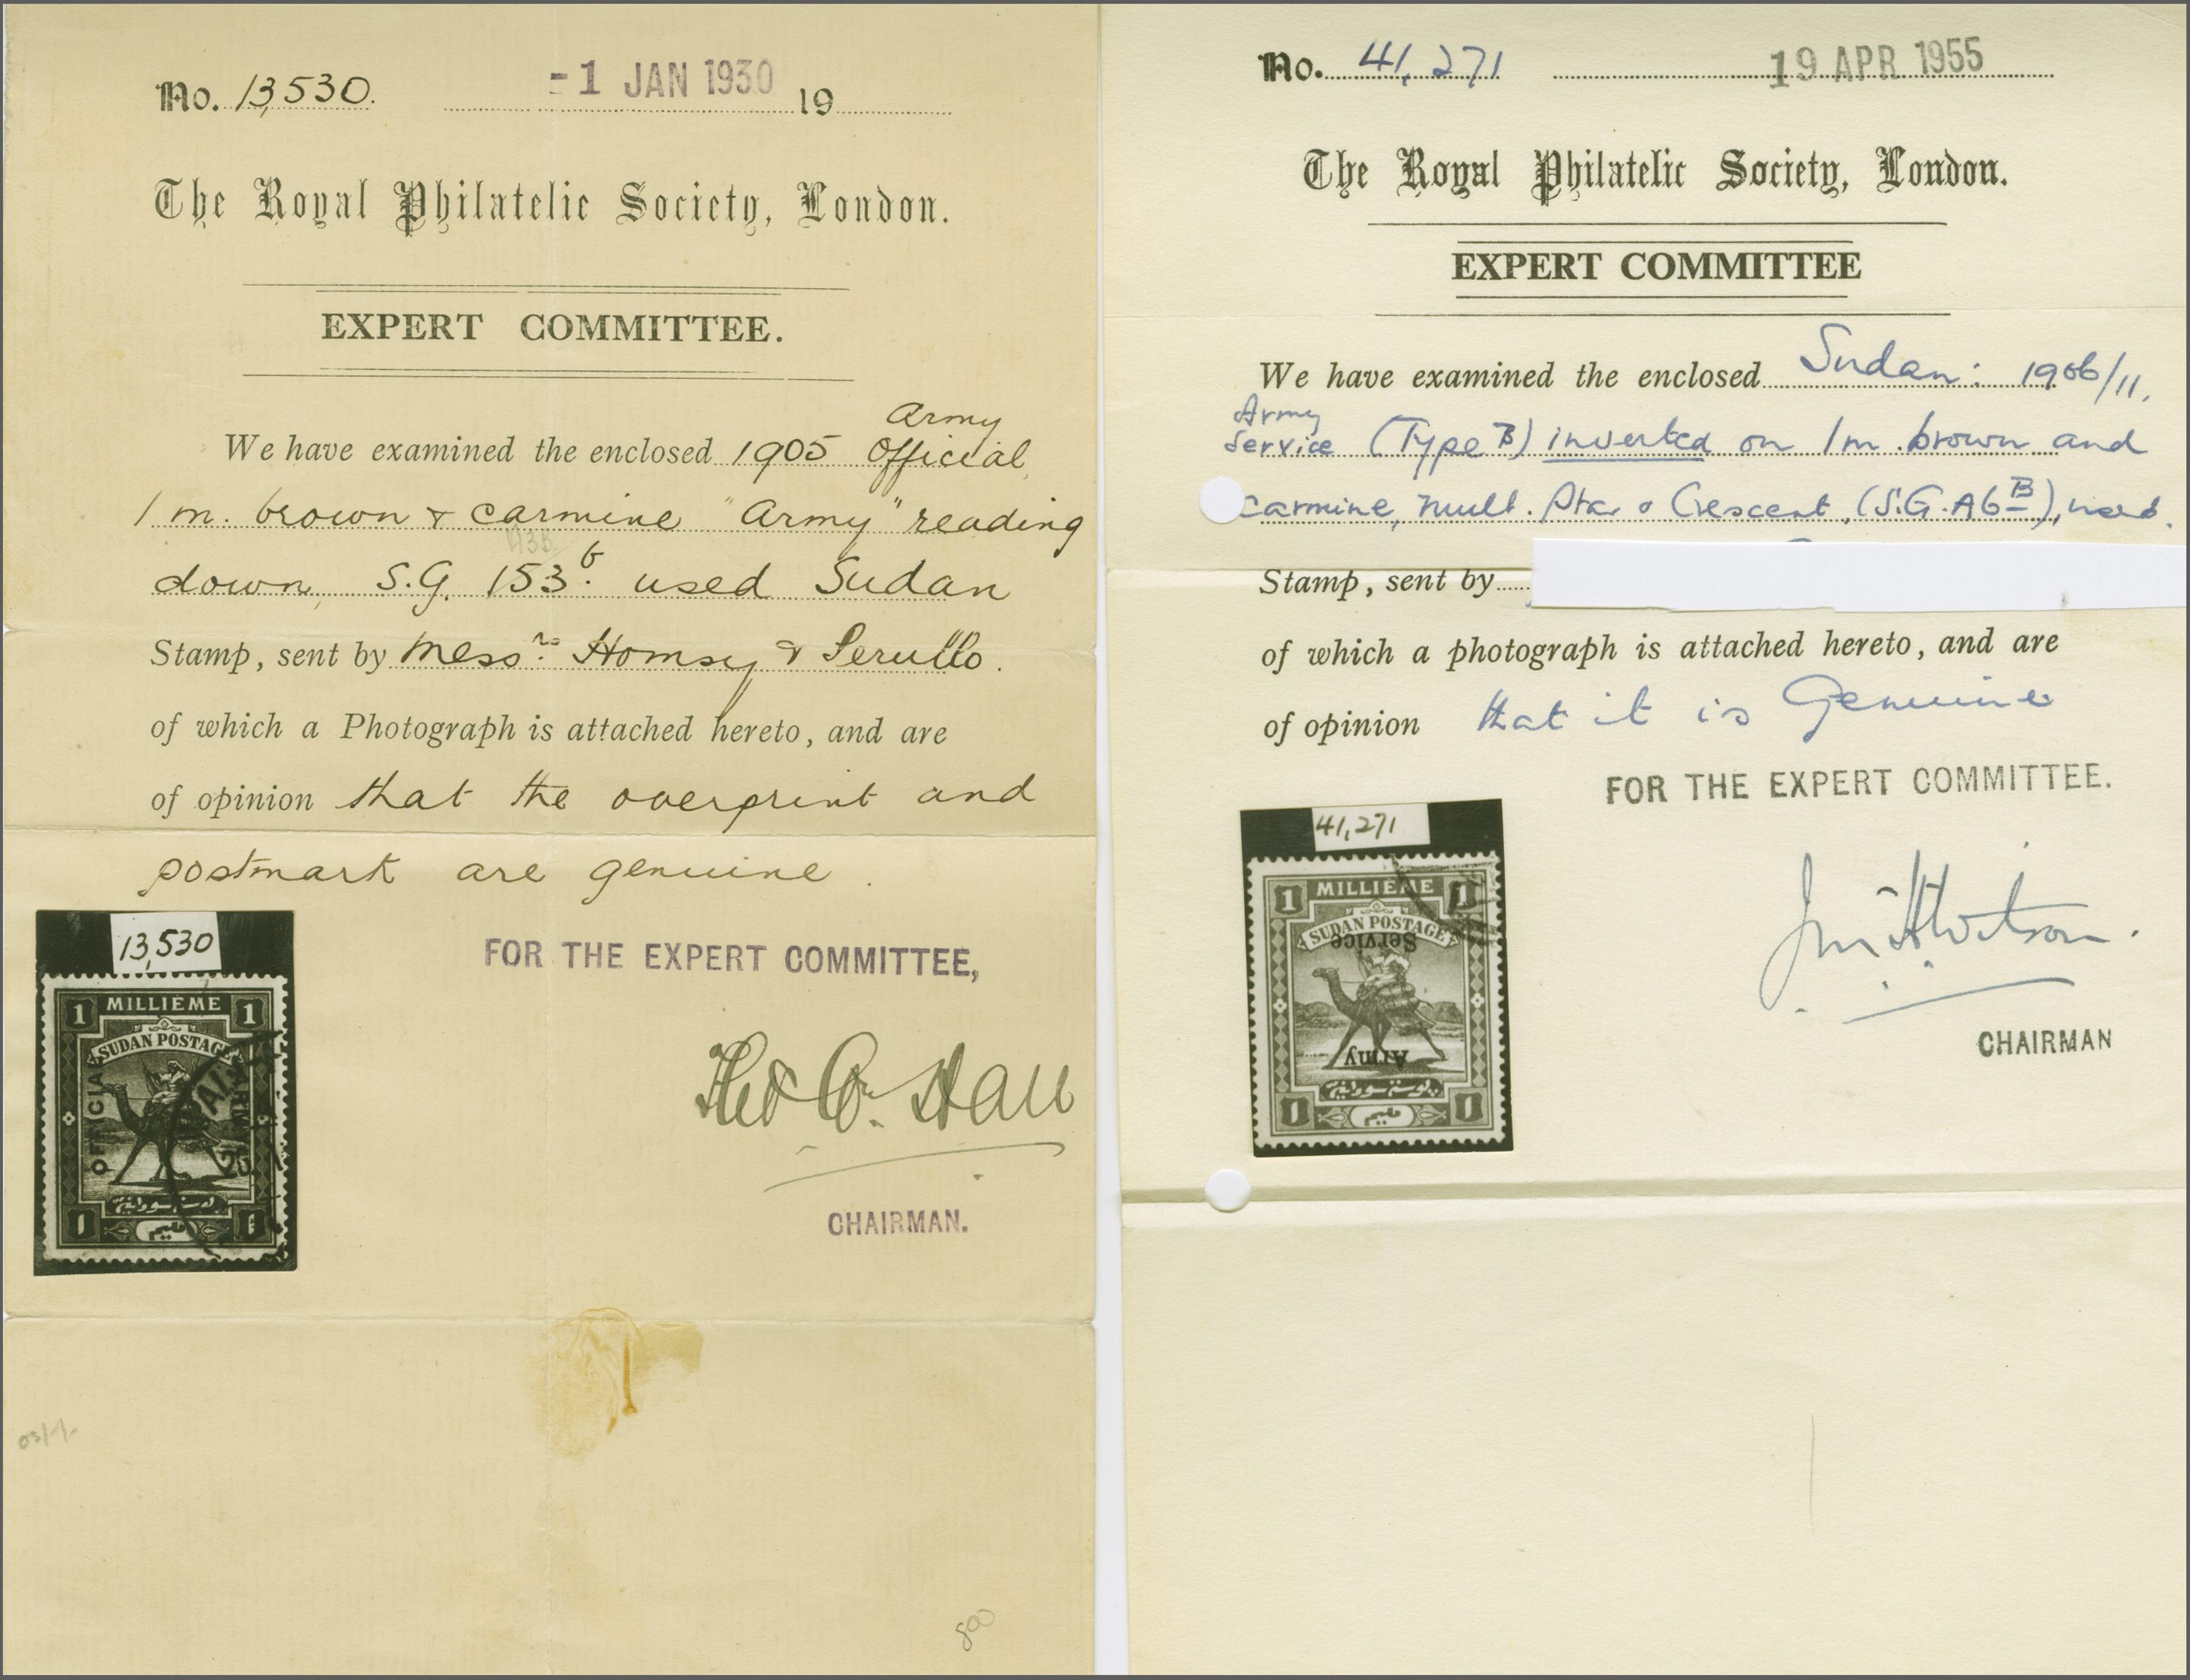 No. 13,530. -1 JAN 1930 19
The Royal Philatelic Society, London.
EXPERT COMMITTEE.
Army
We have examined the enclosed 1905 Official
1 m. brown & carmine "Army" reading
down, S.G. 153b. used Sudan
Stamp, sent by Messrs. Homsy & Serullo.
of which a Photograph is attached hereto, and are
of opinion that the overprint and
postmark are genuine.
13,530
1 MILLIEME 1
SUDAN POSTAGE
OFFICIAL
ARMY
1 1
FOR THE EXPERT COMMITTEE,
CHAIRMAN.
800
No. 41,271 19 APR 1955
The Royal Philatelic Society, London.
EXPERT COMMITTEE
We have examined the enclosed Sudan: 1906/11.
Army
Service (Type B) inverted on 1m. brown and
carmine, mult. Star & Crescent, (S.G. A6B), used.
Stamp, sent by
of which a photograph is attached hereto, and are
of opinion that it is Genuine
FOR THE EXPERT COMMITTEE.
41,271
1 MILLIEME 1
SUDAN POSTAGE
Service
Army
1 1
CHAIRMAN